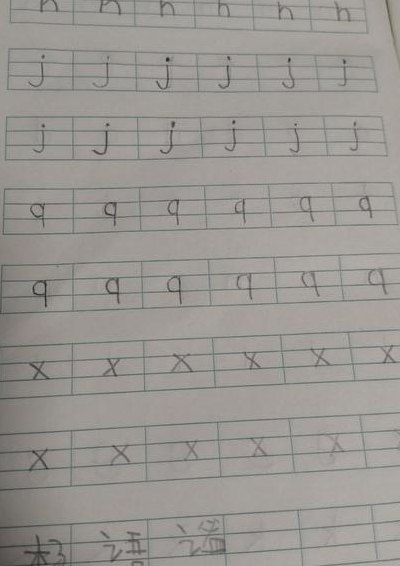 h h h h h h
j j j j j j
j j j j j j
q q q q q q
q q q q q q
x x x x x x
x x x x x